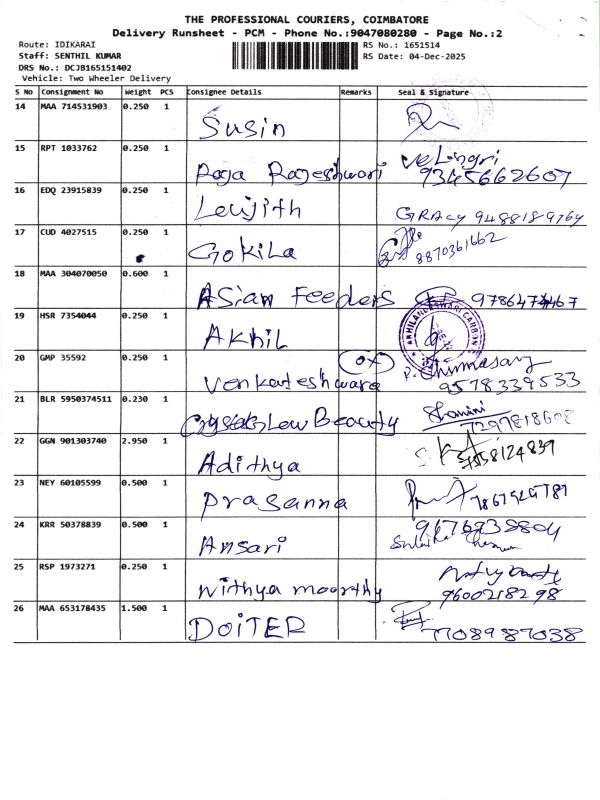 THE PROFESSIONAL COURIERS, COIMBATORE
Delivery Runsheet - PCM - Phone No.:9047080280 - Page No.:2
Route: IDIKARAI
RS No.: 1651514
Staff: SENTHIL KUMAR
RS Date: 04-Dec-2025
DRS No.: DCJB165151402
Vehicle: Two Wheeler Delivery
S No Consignment No Weight PCS Consignee Details Remarks Seal & Signature
14 MAA 714531903 0.250 1 Susin
15 RPT 1033762 0.250 1 Raja Rajeshwari Velingri
9345662607
16 EDQ 23915839 0.250 1 Leujith GRACY 9488189764
17 CUD 4027515 0.250 1 Gokila
8870361662
18 MAA 304070050 0.600 1 Asian Feeders
19 HSR 7354044 0.250 1 Akhil
20 GMP 35592 0.250 1 Venkateshwara
9578339533
21 BLR 5950374511 0.230 1 Law Beauty Shamini
22 GGN 901303740 2.950 1 Adithya
23 NEY 60105599 0.500 1 Prasanna
24 KRR 50378839 0.500 1 Ansari
25 RSP 1973271 0.250 1 Nithya moorthy
9600218298
26 MAA 653178435 1.500 1 DOITER
7708987038